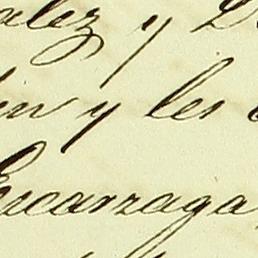 alez y D
in y les
Escarzaga